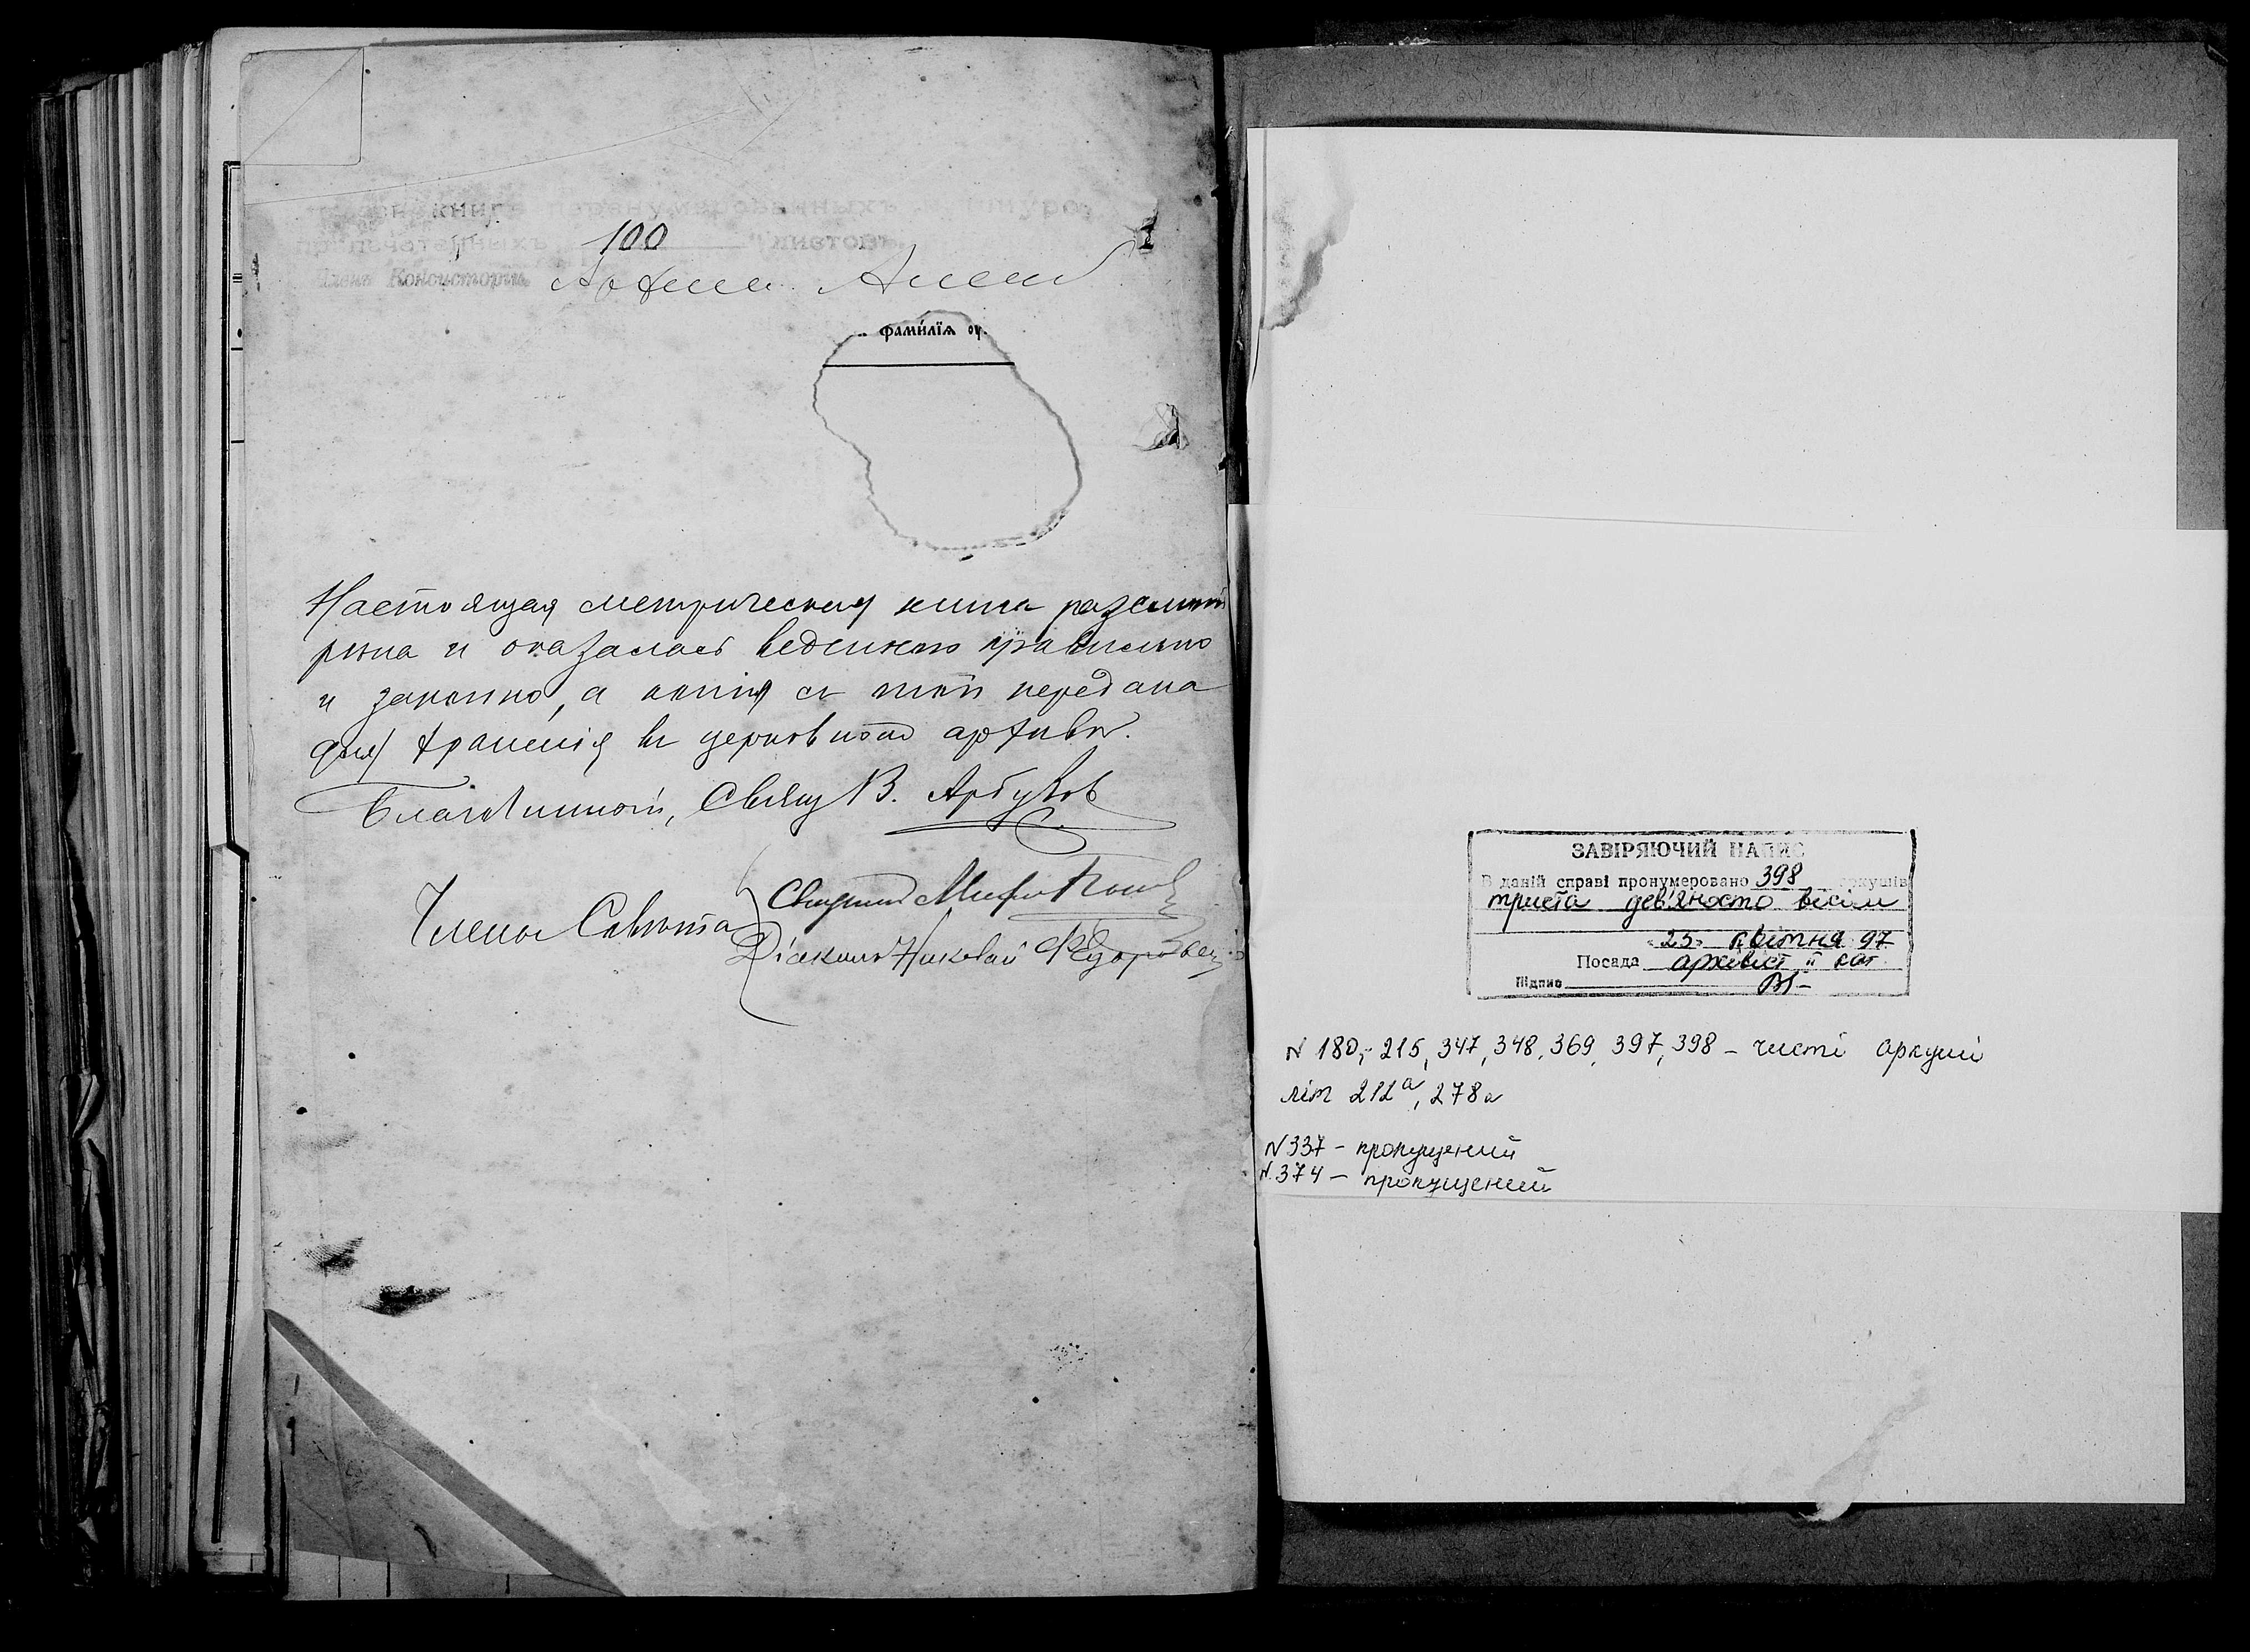 книгѣ перенумерованныхъ
100 листовъ
Членъ Консисторіи
фами́лїѧ
Настоящая метрическая книга разсмот
рѣна и оказалась веденною правильно
и законно, а копія съ нея передана
для храненія въ церковный архивъ.
Благочинный, Свящ В. Арбузовъ
Члены Совѣта
Священник
Діаконъ Николай Федоровск
ЗАВІРЯЮЧИЙ НАПИС
В даній справі пронумеровано 398 аркушів
триста дев'яносто вісім
«25» квітня 97
Посада архівіст II кат.
Підпис
N 180, 215, 347, 348, 369, 397, 398 – чисті аркуші
літ 212а, 278а
N 337 – пропущений
N 374 – пропущений